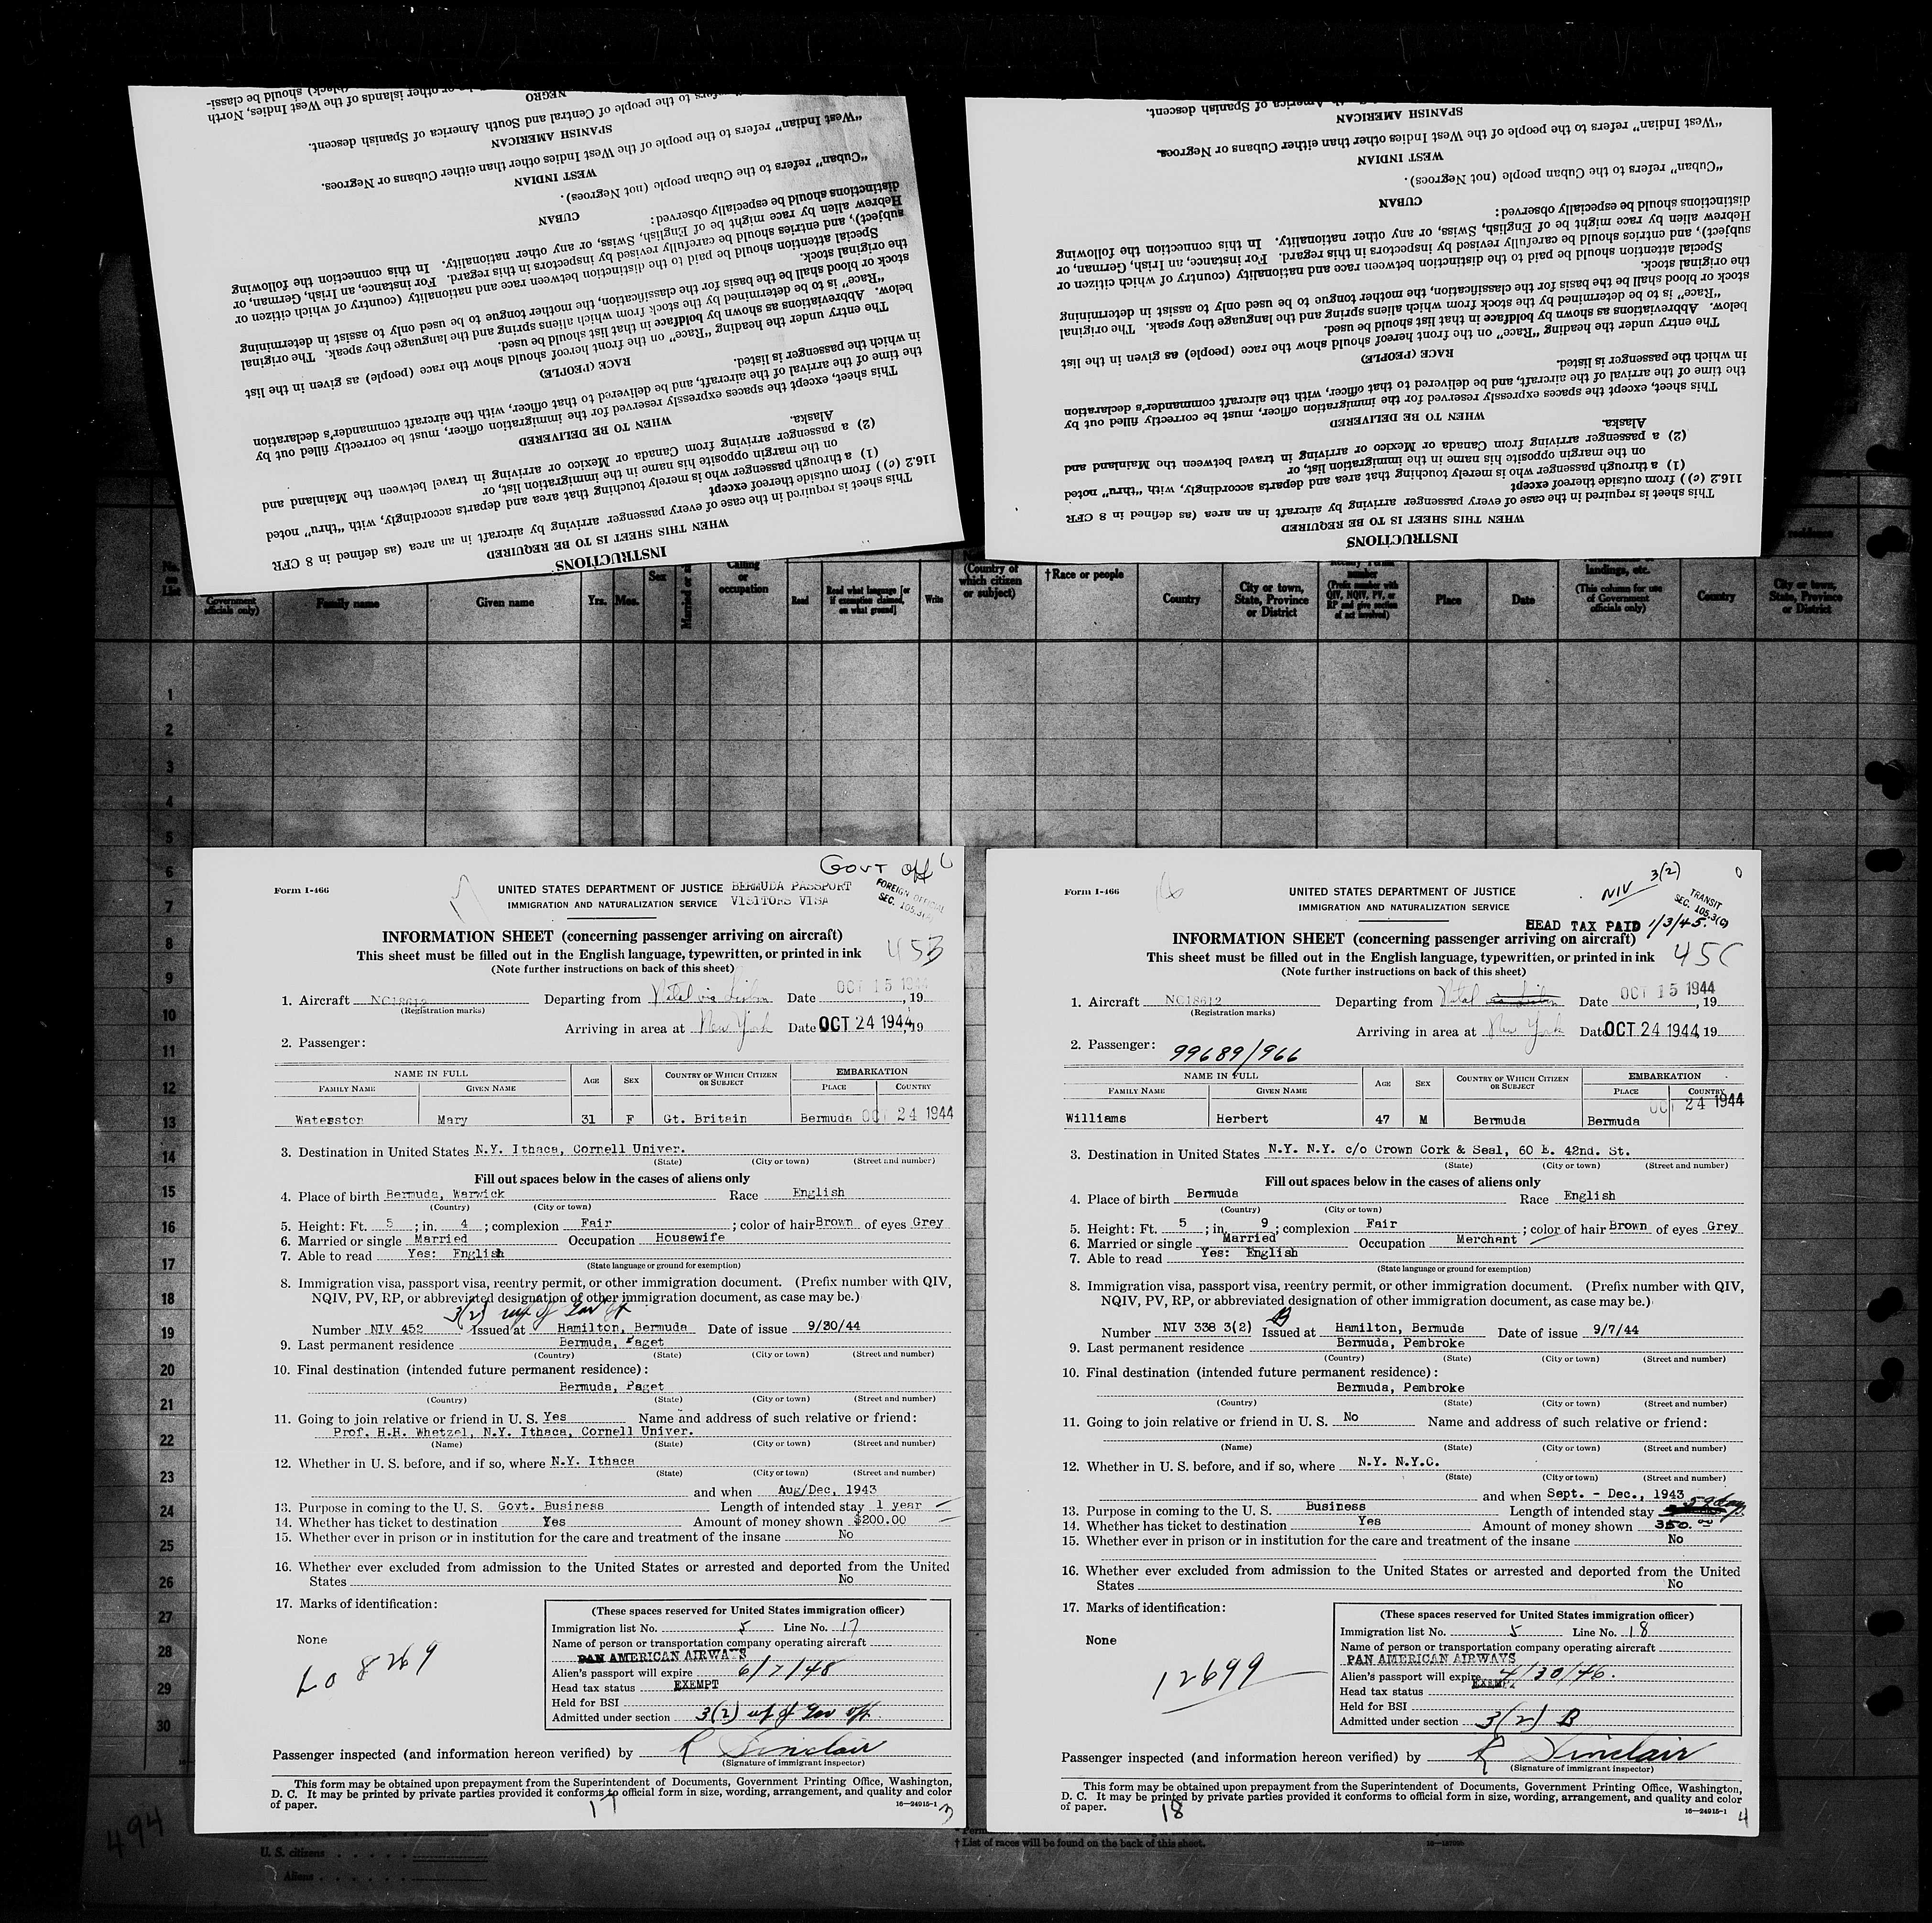 (black) should be classi-
or other islands of the West Indies, North
NEGRO
refers to the people of Central and South America of Spanish descent.
SPANISH AMERICAN
"West Indian" refers to the people of the West Indies other than either Cubans or Negroes.
WEST INDIAN
"Cuban" refers to the Cuban people (not Negroes).
CUBAN
distinctions should be especially observed:
Hebrew alien by race might be of English, Swiss, or any other nationality. In this connection the following
subject), and entries should be carefully revised by inspectors in this regard. For instance, an Irish, German, or
Special attention should be paid to the distinction between race and nationality (country of which citizen or
the original stock.
stock or blood shall be the basis for the classification, the mother tongue to be used only to assist in determining
"Race" is to be determined by the stock from which aliens spring and the language they speak. The original
below. Abbreviations as shown by boldface in that list should be used.
The entry under the heading "Race" on the front hereof should show the race (people) as given in the list
RACE (PEOPLE)
in which the passenger is listed.
the time of the arrival of the aircraft, and be delivered to that officer, with the aircraft commander's declaration
This sheet, except the spaces expressly reserved for the immigration officer, must be correctly filled out by
WHEN TO BE DELIVERED
Alaska.
(2) a passenger arriving from Canada or Mexico or arriving in travel between the Mainland and
on the margin opposite his name in the immigration list, or
(1) a through passenger who is merely touching that area and departs accordingly, with "thru" noted
116.2 (c)) from outside thereof except
This sheet is required in the case of every passenger arriving by aircraft in an area (as defined in 8 CFR
WHEN THIS SHEET IS TO BE REQUIRED
INSTRUCTIONS
America of Spanish descent.
SPANISH AMERICAN
"West Indian" refers to the people of the West Indies other than either Cubans or Negroes.
WEST INDIAN
"Cuban" refers to the Cuban people (not Negroes).
CUBAN
distinctions should be especially observed:
Hebrew alien by race might be of English, Swiss, or any other nationality. In this connection the following
subject), and entries should be carefully revised by inspectors in this regard. For instance, an Irish, German, or
Special attention should be paid to the distinction between race and nationality (country of which citizen or
the original stock.
stock or blood shall be the basis for the classification, the mother tongue to be used only to assist in determining
"Race" is to be determined by the stock from which aliens spring and the language they speak. The original
below. Abbreviations as shown by boldface in that list should be used.
The entry under the heading "Race" on the front hereof should show the race (people) as given in the list
RACE (PEOPLE)
in which the passenger is listed.
the time of the arrival of the aircraft, and be delivered to that officer, with the aircraft commander's declaration
This sheet, except the spaces expressly reserved for the immigration officer, must be correctly filled out by
WHEN TO BE DELIVERED
Alaska.
(2) a passenger arriving from Canada or Mexico or arriving in travel between the Mainland and
on the margin opposite his name in the immigration list, or
(1) a through passenger who is merely touching that area and departs accordingly, with "thru" noted
116.2 (c)) from outside thereof except
This sheet is required in the case of every passenger arriving by aircraft in an area (as defined in 8 CFR
WHEN THIS SHEET IS TO BE REQUIRED
INSTRUCTIONS
No. on List
Government officials only)
Family name
Given name
Yrs. Mos.
Sex
Married or
Calling or occupation
Read
Read what language [or if exemption claimed, on what ground]
Write
(Country of which citizen or subject)
†Race or people
Country
City or town, State, Province or District
number (Prefix number with QIV, NQIV, PV, or RP and give section of act involved)
Place
Date
landings, etc. (This column for use of Government officials only)
Country
City or town, State, Province or District
1
2
3
4
5
6
7
8
9
10
11
12
13
14
15
16
17
18
19
20
21
22
23
24
25
26
27
28
29
30
Govt Off
Form I-466
17
UNITED STATES DEPARTMENT OF JUSTICE BERMUDA PASSPORT
IMMIGRATION AND NATURALIZATION SERVICE VISITORS VISA
FOREIGN OFFICIAL
SEC. 105.3
INFORMATION SHEET (concerning passenger arriving on aircraft)
45B
This sheet must be filled out in the English language, typewritten, or printed in ink
(Note further instructions on back of this sheet)
1. Aircraft NC18612 Departing from Natal via Lisbon Date OCT 15 1944, 19
(Registration marks)
Arriving in area at New York Date OCT 24 1944, 19
2. Passenger:
NAME IN FULL AGE SEX COUNTRY OF WHICH CITIZEN OR SUBJECT EMBARKATION
FAMILY NAME GIVEN NAME PLACE COUNTRY
Waterston Mary 31 F Gt. Britain Bermuda OCT 24 1944
3. Destination in United States N.Y. Ithaca, Cornell Univer.
(State) (City or town) (Street and number)
Fill out spaces below in the cases of aliens only
4. Place of birth Bermuda, Warwick Race English
(Country) (City or town)
5. Height: Ft. 5 ; in. 4 ; complexion Fair ; color of hair Brown of eyes Grey
6. Married or single Married Occupation Housewife
7. Able to read Yes: English
(State language or ground for exemption)
8. Immigration visa, passport visa, reentry permit, or other immigration document. (Prefix number with QIV,
NQIV, PV, RP, or abbreviated designation of other immigration document, as case may be.)
3(2) wf of Gov off
Number NIV 452 Issued at Hamilton, Bermuda Date of issue 9/30/44
9. Last permanent residence Bermuda, Paget
(Country) (State) (City or town) (Street and number)
10. Final destination (intended future permanent residence):
Bermuda, Paget
(Country) (State) (City or town) (Street and number)
11. Going to join relative or friend in U. S. Yes Name and address of such relative or friend:
Prof. H.H. Whetzel, N.Y. Ithaca, Cornell Univer.
(Name) (State) (City or town) (Street and number)
12. Whether in U. S. before, and if so, where N.Y. Ithaca
(State) (City or town) (Street and number)
and when Aug/Dec, 1943
13. Purpose in coming to the U. S. Govt. Business Length of intended stay 1 year
14. Whether has ticket to destination Yes Amount of money shown $200.00
15. Whether ever in prison or in institution for the care and treatment of the insane No
16. Whether ever excluded from admission to the United States or arrested and deported from the United
States No
17. Marks of identification:
None
Lo 8269
(These spaces reserved for United States immigration officer)
Immigration list No. 5 Line No. 17
Name of person or transportation company operating aircraft
PAN AMERICAN AIRWAYS
Alien's passport will expire 6/7/48
Head tax status EXEMPT
Held for BSI
Admitted under section 3(2) wf of Gov off.
Passenger inspected (and information hereon verified) by R Sinclair
(Signature of immigrant inspector)
This form may be obtained upon prepayment from the Superintendent of Documents, Government Printing Office, Washington,
D. C. It may be printed by private parties provided it conforms to official form in size, wording, arrangement, and quality and color
of paper.
17
16—24915-1
3
Form I-466
UNITED STATES DEPARTMENT OF JUSTICE
IMMIGRATION AND NATURALIZATION SERVICE
NIV 3(2)
TRANSIT
SEC. 105.3(C)
HEAD TAX PAID 1/3/45.
INFORMATION SHEET (concerning passenger arriving on aircraft)
45C
This sheet must be filled out in the English language, typewritten, or printed in ink
(Note further instructions on back of this sheet)
1. Aircraft NC18612 Departing from Natal via Lisbon Date OCT 15 1944, 19
(Registration marks)
Arriving in area at New York Date OCT 24 1944, 19
2. Passenger: 99689/966
NAME IN FULL AGE SEX COUNTRY OF WHICH CITIZEN OR SUBJECT EMBARKATION
FAMILY NAME GIVEN NAME PLACE COUNTRY
Williams Herbert 47 M Bermuda Bermuda OCT 24 1944
3. Destination in United States N.Y. N.Y. c/o Crown Cork & Seal, 60 E. 42nd. St.
(State) (City or town) (Street and number)
Fill out spaces below in the cases of aliens only
4. Place of birth Bermuda Race English
(Country) (City or town)
5. Height: Ft. 5 ; in. 9 ; complexion Fair ; color of hair Brown of eyes Grey
6. Married or single Married Occupation Merchant
7. Able to read Yes: English
(State language or ground for exemption)
8. Immigration visa, passport visa, reentry permit, or other immigration document. (Prefix number with QIV,
NQIV, PV, RP, or abbreviated designation of other immigration document, as case may be.)
B
Number NIV 338 3(2) Issued at Hamilton, Bermuda Date of issue 9/7/44
9. Last permanent residence Bermuda, Pembroke
(Country) (State) (City or town) (Street and number)
10. Final destination (intended future permanent residence):
Bermuda, Pembroke
(Country) (State) (City or town) (Street and number)
11. Going to join relative or friend in U. S. No Name and address of such relative or friend:
(Name) (State) (City or town) (Street and number)
12. Whether in U. S. before, and if so, where N.Y. N.Y.C.
(State) (City or town) (Street and number)
and when Sept. - Dec., 1943
13. Purpose in coming to the U. S. Business Length of intended stay 59 days
14. Whether has ticket to destination Yes Amount of money shown 350.00
15. Whether ever in prison or in institution for the care and treatment of the insane No
16. Whether ever excluded from admission to the United States or arrested and deported from the United
States No
17. Marks of identification:
None
12699
(These spaces reserved for United States immigration officer)
Immigration list No. 5 Line No. 18
Name of person or transportation company operating aircraft
PAN AMERICAN AIRWAYS
Alien's passport will expire 4/30/46.
Head tax status EXEMPT
Held for BSI
Admitted under section 3(2) B
Passenger inspected (and information hereon verified) by R Sinclair
(Signature of immigrant inspector)
This form may be obtained upon prepayment from the Superintendent of Documents, Government Printing Office, Washington,
D. C. It may be printed by private parties provided it conforms to official form in size, wording, arrangement, and quality and color
of paper.
18
16—24915-1
4
494
U. S. citizens
Aliens
† List of races will be found on the back of this sheet.